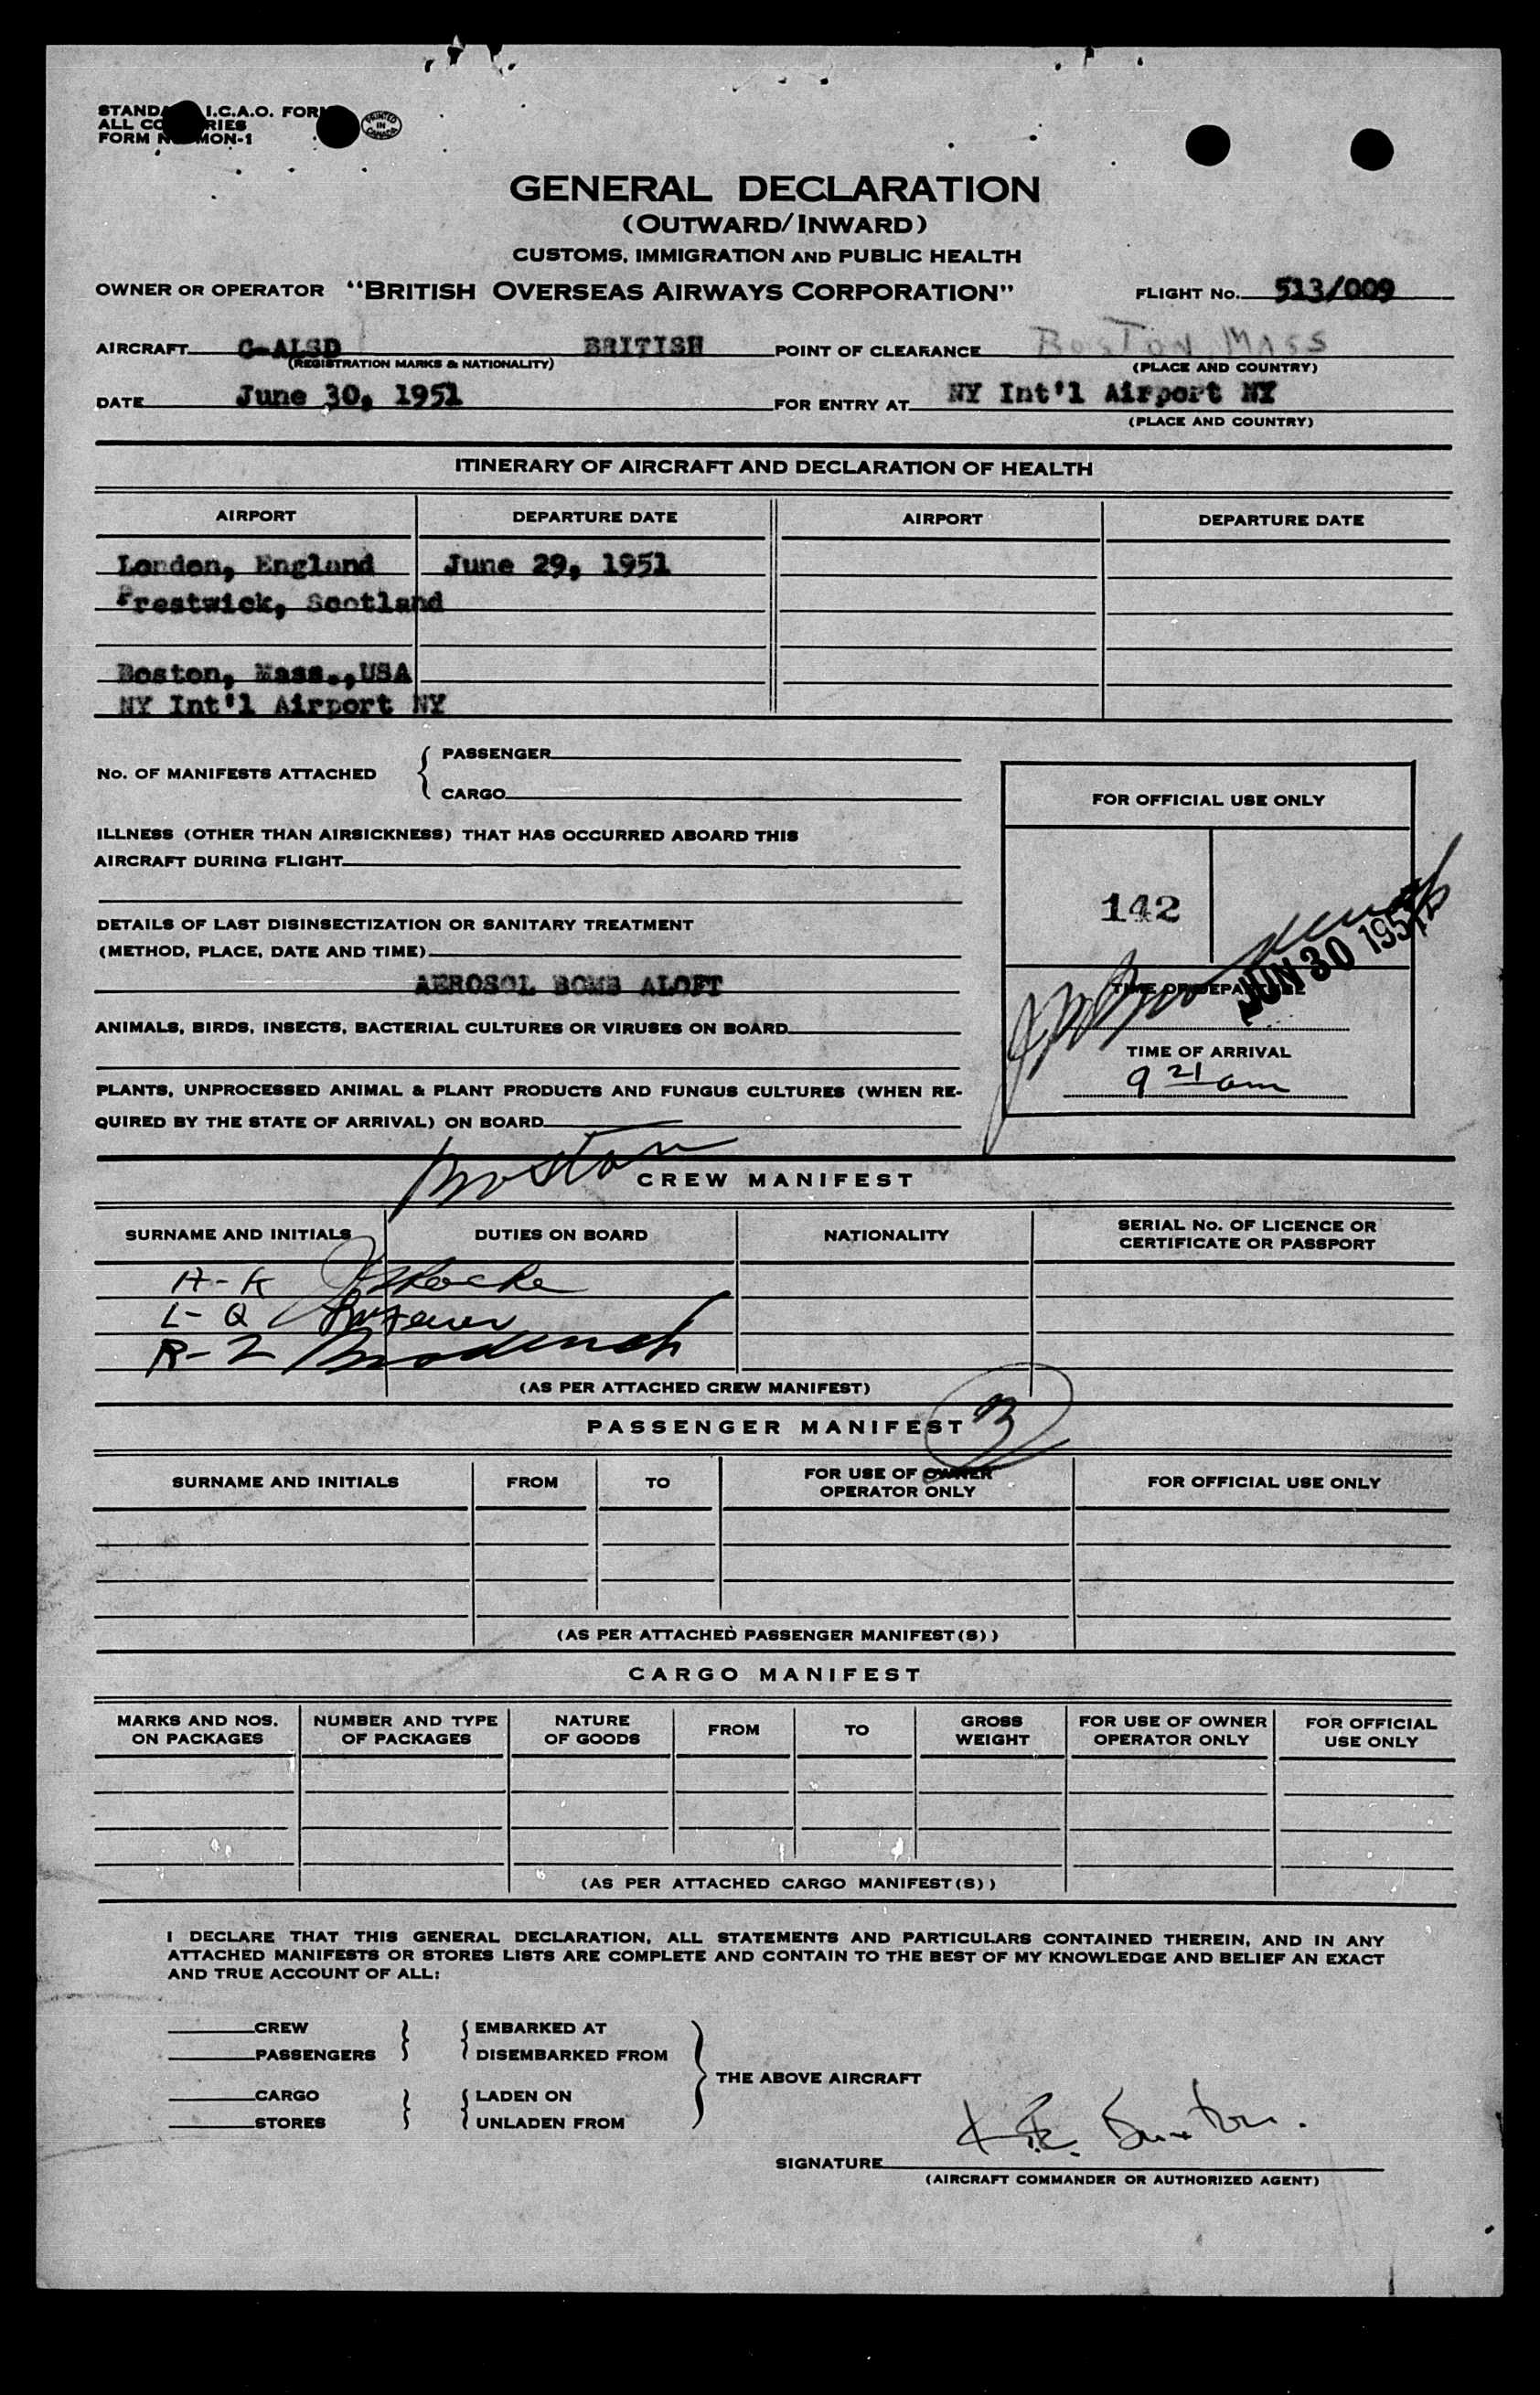 I.C.A.O. FORM
ALL COUNTRIES
FORM MON-1
PRINTED IN CANADA
GENERAL DECLARATION
(OUTWARD/INWARD)
CUSTOMS, IMMIGRATION AND PUBLIC HEALTH
OWNER OR OPERATOR "BRITISH OVERSEAS AIRWAYS CORPORATION" FLIGHT No. 513/009
AIRCRAFT G-ALSD BRITISH POINT OF CLEARANCE BOSTON MASS
(REGISTRATION MARKS & NATIONALITY) (PLACE AND COUNTRY)
DATE June 30, 1951 FOR ENTRY AT NY Int'l Airport NY
(PLACE AND COUNTRY)
ITINERARY OF AIRCRAFT AND DECLARATION OF HEALTH
AIRPORT DEPARTURE DATE AIRPORT DEPARTURE DATE
London, England June 29, 1951
Prestwick, Scotland
Boston, Mass.,USA
NY Int'l Airport NY
No. OF MANIFESTS ATTACHED { PASSENGER
CARGO
FOR OFFICIAL USE ONLY
ILLNESS (OTHER THAN AIRSICKNESS) THAT HAS OCCURRED ABOARD THIS
AIRCRAFT DURING FLIGHT
142
JUN 30 1951
DETAILS OF LAST DISINSECTIZATION OR SANITARY TREATMENT
(METHOD, PLACE, DATE AND TIME)
AEROSOL BOMB ALOFT
TIME OF DEPARTURE
ANIMALS, BIRDS, INSECTS, BACTERIAL CULTURES OR VIRUSES ON BOARD
TIME OF ARRIVAL
9 21 am
PLANTS, UNPROCESSED ANIMAL & PLANT PRODUCTS AND FUNGUS CULTURES (WHEN RE-
QUIRED BY THE STATE OF ARRIVAL) ON BOARD
Boston
CREW MANIFEST
SURNAME AND INITIALS DUTIES ON BOARD NATIONALITY SERIAL No. OF LICENCE OR
CERTIFICATE OR PASSPORT
A-K
L-Q
R-Z
(AS PER ATTACHED CREW MANIFEST)
PASSENGER MANIFEST 3
SURNAME AND INITIALS FROM TO FOR USE OF OWNER
OPERATOR ONLY FOR OFFICIAL USE ONLY
(AS PER ATTACHED PASSENGER MANIFEST(S))
CARGO MANIFEST
MARKS AND NOS. ON PACKAGES NUMBER AND TYPE OF PACKAGES NATURE OF GOODS FROM TO GROSS WEIGHT FOR USE OF OWNER OPERATOR ONLY FOR OFFICIAL USE ONLY
(AS PER ATTACHED CARGO MANIFEST(S))
I DECLARE THAT THIS GENERAL DECLARATION, ALL STATEMENTS AND PARTICULARS CONTAINED THEREIN, AND IN ANY
ATTACHED MANIFESTS OR STORES LISTS ARE COMPLETE AND CONTAIN TO THE BEST OF MY KNOWLEDGE AND BELIEF AN EXACT
AND TRUE ACCOUNT OF ALL:
CREW } { EMBARKED AT
PASSENGERS } { DISEMBARKED FROM
THE ABOVE AIRCRAFT
CARGO } { LADEN ON
STORES } { UNLADEN FROM
SIGNATURE
(AIRCRAFT COMMANDER OR AUTHORIZED AGENT)